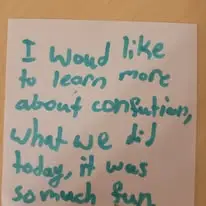 I woud like
to learn more
about consution,
what we did
today, it was
so much fun